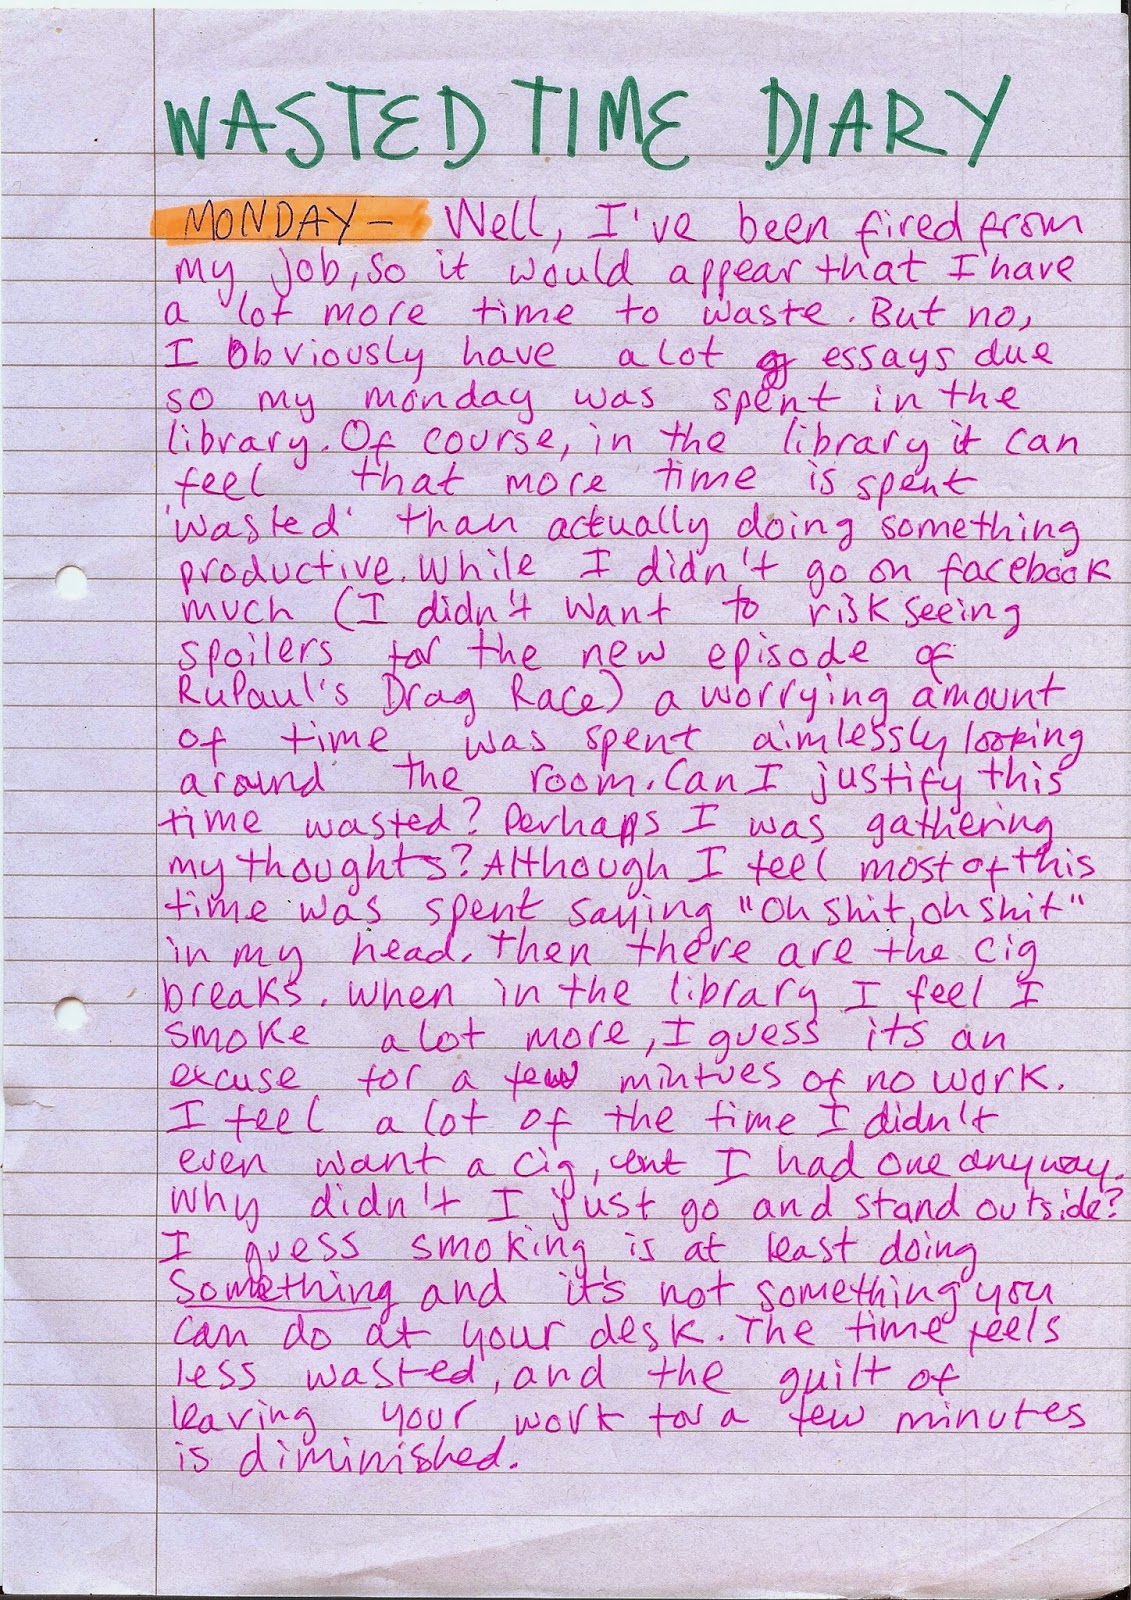 WASTED TIME DIARY
MONDAY - Well, I've been fired from
my job, so it would appear that I have
a lot more time to waste. But no,
I Obviously have a lot essays due
so my monday was spent in the
library. Of course, in the library it can
feel that more time is spent
'wasted' than actually doing something
productive. While I didn't go on facebook
much (I didn't want to risk seeing
spoilers for the new episode of
RuPaul's Drag Race) a worrying amount
of time was spent aimlessly looking
around the room. Can I justify this
time wasted? Perhaps I was gathering
my thoughts? Although I feel most of this
time was spent saying "Oh shit, oh shit"
in my head. Then there are the cig
breaks. When in the library I feel I
smoke a lot more, I guess its an
excuse for a few mintues of no work.
I feel a lot of the time I didn't
even want a cig, I had one anyway.
Why didn't I just go and stand outside?
I guess smoking is at least doing
Something and it's not something you
can do at your desk. The time feels
less wasted, and the guilt of
leaving your work for a few minutes
is diminished.